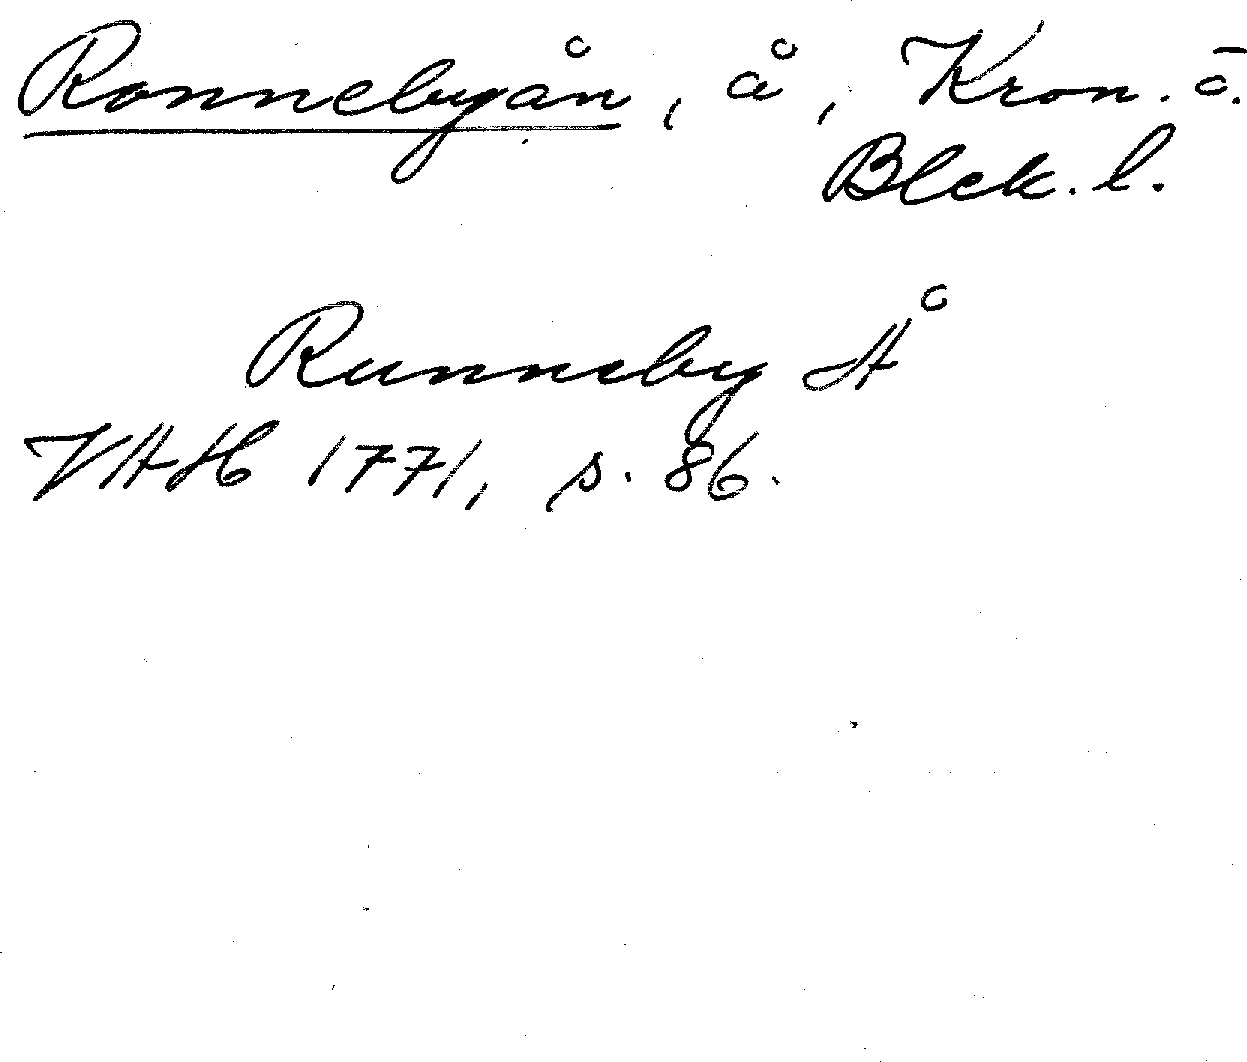 Ronnebyån, å, Kron. o.
Blek. l.
Runneby Å
VAH 1771, s. 86.